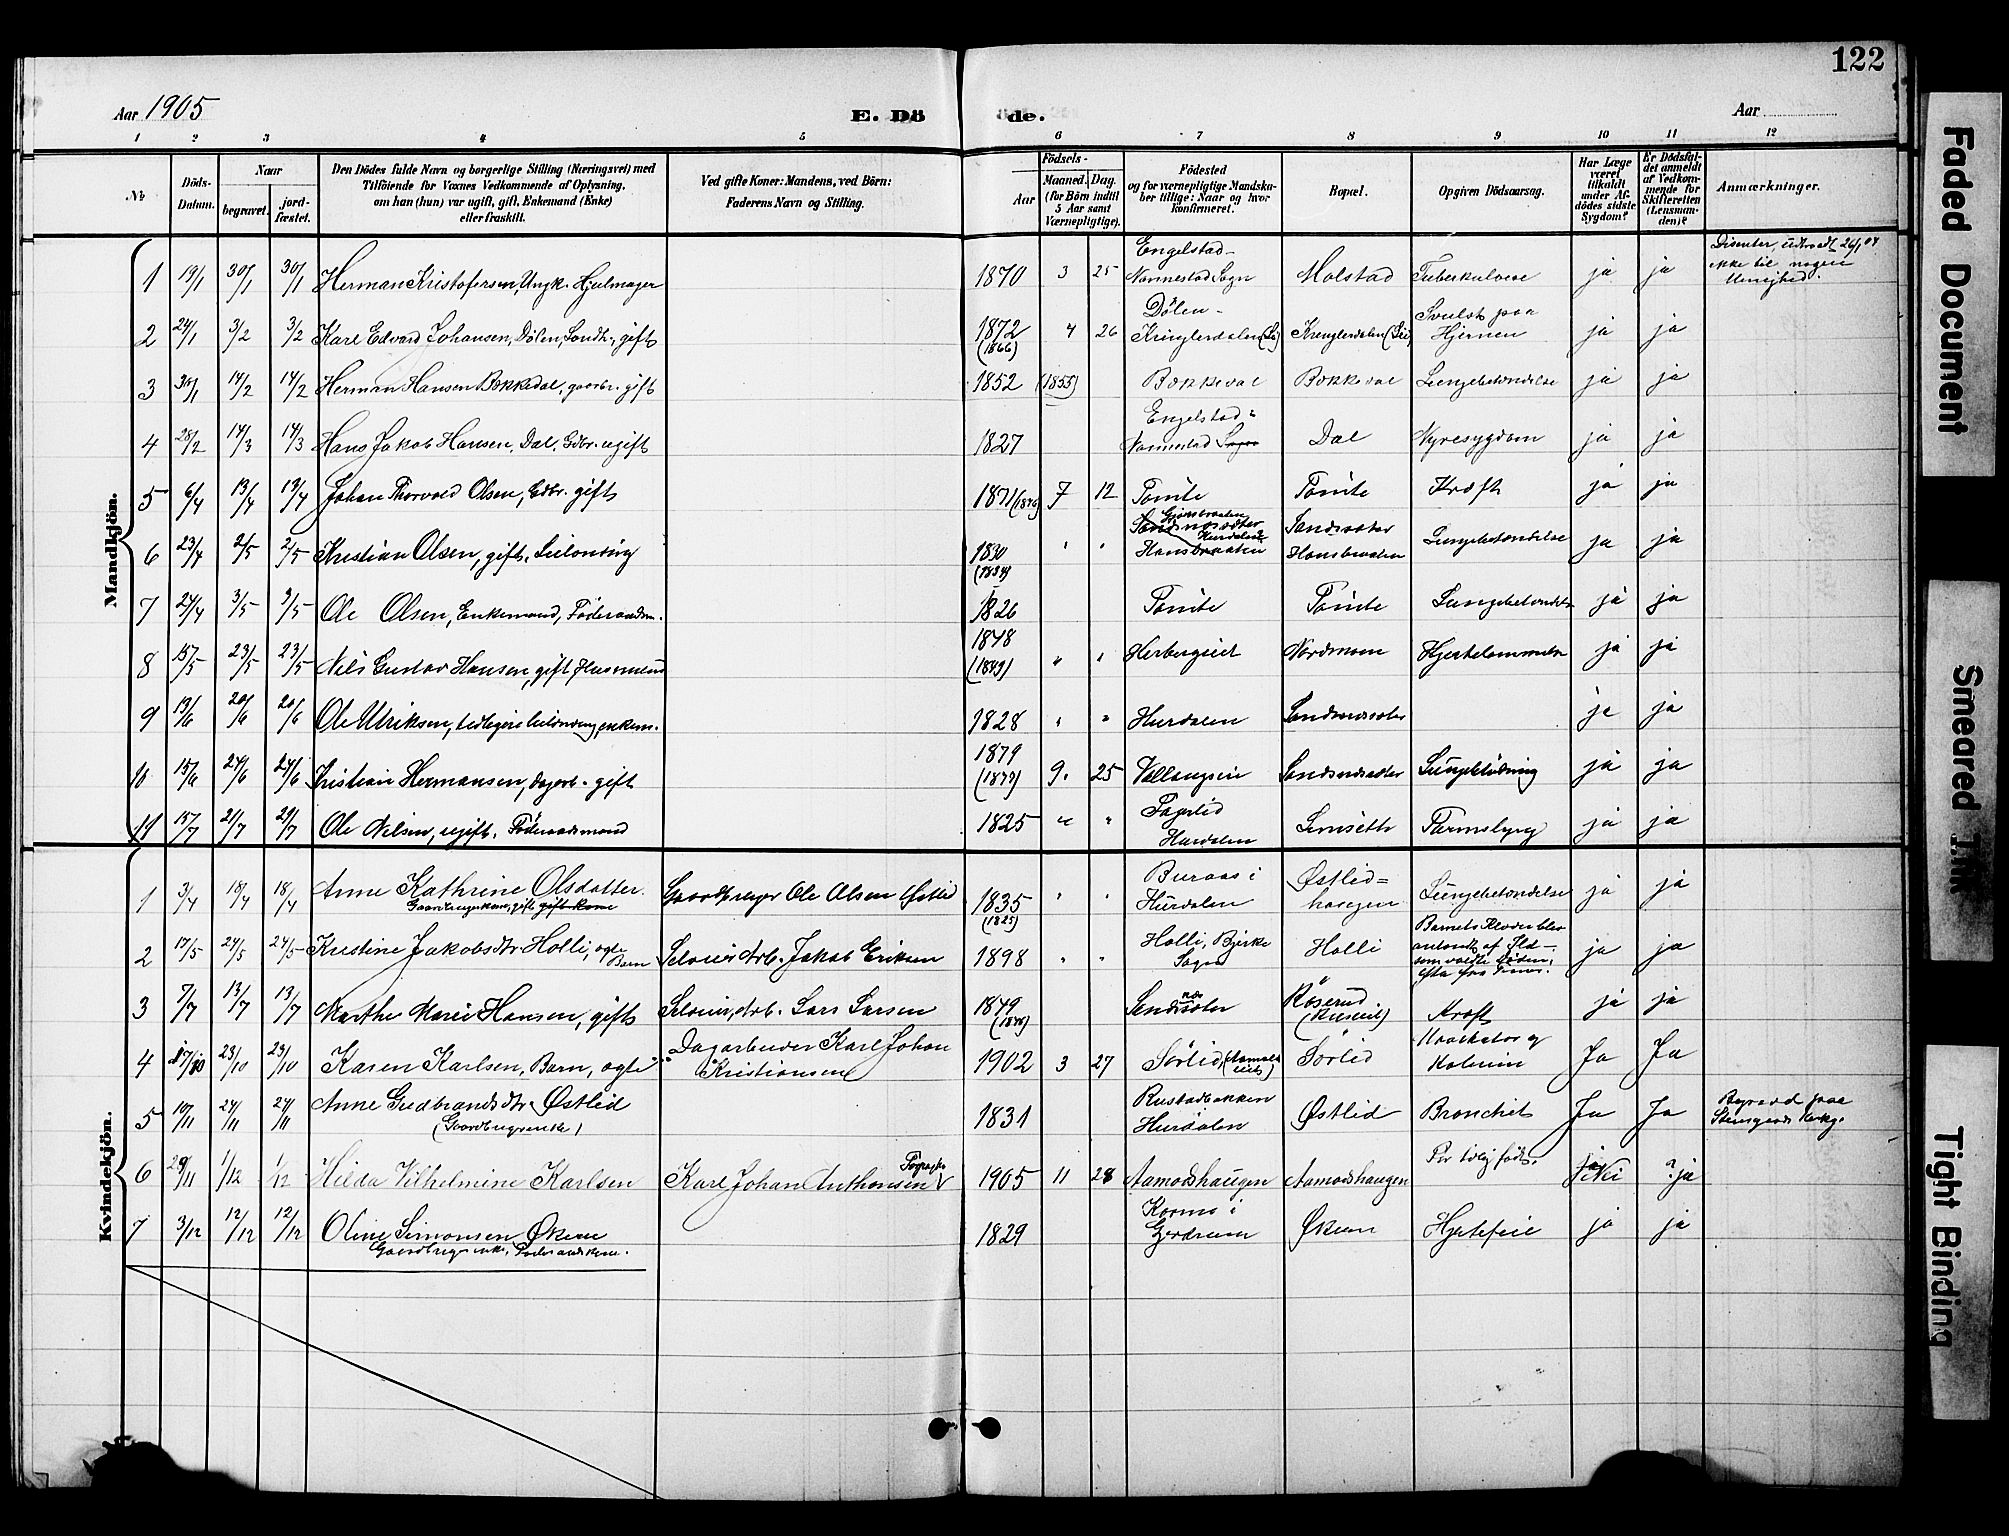 122
Aar 1905
E. Dö
de.
Aar
1 2 3 4 5 6 7 8 9 10 11 12
№
Döds-
Datum.
Naar
begravet.
jord-
fæstet.
Den Dödes fulde Navn og borgerlige Stilling (Næringsvei) med
Tilföiende for Voxnes Vedkommende af Oplysning,
om han (hun) var ugift, gift, Enkemand (Enke)
eller fraskilt.
Ved gifte Koner: Mandens, ved Börn:
Faderens Navn og Stilling.
Födsels-
Aar
Maaned. Dag.
(for Börn indtil
5 Aar samt
Værnepligtige).
Födested
og for værnepligtige Mandska-
ber tillige: Naar og hvor
konfirmeret.
Bopæl.
Opgiven Dödsaarsag.
Har Læge
været
tilkaldt
under Af-
dödes sidste
Sygdom?
Er Dödsfal-
det anmeldt
af Vedkom-
mende for
Skifteretten
(Lensman-
den)?
Anmærkninger.
Mandkjön.
1 19/1 30/1 30/1 Herman Kristofersen, Ungk. Hjulmager 1870 3 25 Engelstad - Nannestad Sogn Molstad Tuberkulose ja ja Disenter, udtraadt 26/1 04 ikke til nogen Menighed.
2 24/1 3/2 3/2 Karl Edvard Johansen, Dölen, gift 1872 (1866) 4 26 Dölen - Kringlerdalen Kringlerdalen Svulst paa Hjernen ja ja
3 30/1 14/2 14/2 Herman Hansen Bokkedal, gaardbr. gift 1852 (1853) Bokkedal Bokkedal Lungebetændelse ja ja
4 28/2 14/3 14/3 Hans Jakob Hansen, Dal, Gdbr. ugift 1827 Engelstad i Nannestad Sogn Dal Nyresygdom ja ja
5 6/4 13/4 13/4 Johan Thorvald Olsen, Gdbr. gift 1871 (1870) 7 12 Tomte Tomte Kræft ja ja
6 23/4 2/5 2/5 Kristian Olsen, gift, Leilending 1830 (1834) " " Hansbraaten Hurdalen Sandsnæsæter Hansbraaten Lungebetændelse ja ja
7 24/4 3/5 3/5 Ole Olsen, Enkemand, Föderaadsm. 1826 Tomte Tomte Lungebetændelse ja ja
8 15/5 23/5 23/5 Nils Gustav Hansen, gift Husmand 1848 (1849) " " Herbergseiet Nordmoen Hjertelammelse ja ja
9 13/6 20/6 20/6 Ole Ulriksen, tidligere leilending, enkem. 1828 " " Hurdalen Sandsnæsæter ja ja
10 15/6 24/6 24/6 Kristian Hermansen, dagarb. gift 1879 (1877) 9. 25 Sandsnæsæter Lungeblödning ja ja
11 15/7 21/7 21/7 Ole Nilsen, ugift, Föderaadsmand 1825 " " Fagerlid Hurdalen Lemseth Tarmslyng ja ja
Kvindekjön.
1 3/4 18/4 18/4 Anne Kathrine Olsdatter Gaardbrugerkone, gift gift Kone Gaardbruger Ole Olsen Östlid 1835 (1825) " " Buraas i Hurdalen Östlid=haugen Lungebetændelse ja ja
2 17/5 24/5 24/5 Kristine Jakobsdtr Holli, ægte Barn Arb. Jakob Eriksen 1898 " " Holli, Bjerke Sogn Holli Barnets Klæder blev antændt af Ild - som voldte Döden, efter fra Timer. ja ja
3 7/7 13/7 13/7 Marthe Marie Hansen, gift Arb. Lars Larsen 1849 Sandsnæsæter Röserud Kræft ja ja
4 17/10 23/10 23/10 Karen Karlsen, Barn, ægte Dagarbeider Karl Johan Kristiansen 1902 3 27 Sörlid, Sörlid Kolerine Ja Ja
5 10/11 24/11 24/11 Anne Gudbrandsdtr Östlid (Gaardbrugerenke) 1831 Rustadbakken Hurdalen Östlid Bronchit Ja Ja Begravet paa Stensgaards Kirkg.
6 29/11 1/12 1/12 Hilda Vilhelmine Karlsen Karl Johan Anthonsen 1905 11 28 Aamodshaugen Aamodshaugen For tidlig födt. ja Nei ? ja
7 3/12 12/12 12/12 Oline Simonsen Ökern Gaardbrugerenke, Föderaadskone. 1829 i Gjerdrum Ökern Hjertefeil ja ja
Faded Document
Smeared Ink
Tight Binding